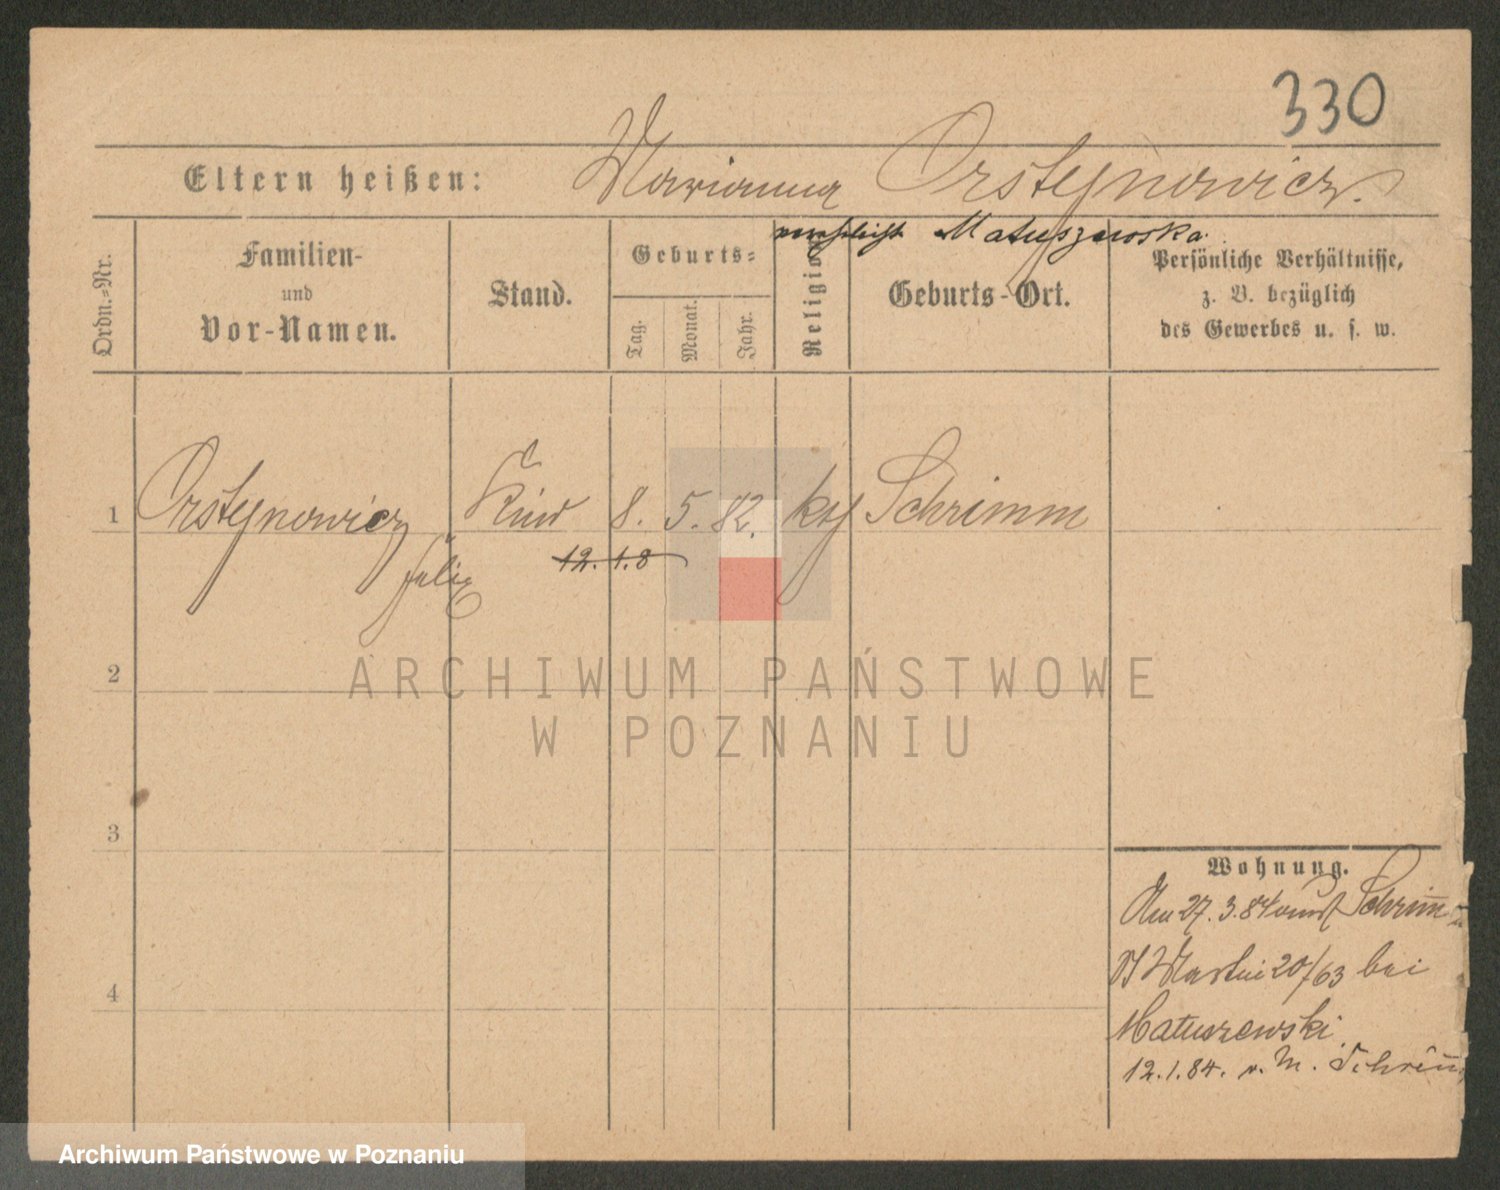 330
Eltern heißen: Marianna Orstynowicz.
verehelicht Matuszewska.
Ordn.-Nr.
Familien-
und
Vor-Namen.
Stand.
Geburts-
Tag.
Monat.
Jahr.
Religion
Geburts-Ort.
Persönliche Verhältnisse,
z. B. bezüglich
des Gewerbes u. s. w.
1 Orstynowicz Kind 8. 5. 82. kth Schrimm
Felix
12. 1. 8
ARCHIWUM PAŃSTWOWE
W POZNANIU
2
3
4
Wohnung.
Am 27. 3. 84 Schrimm
St Martin 20/63 bei
Matuszewski
12. 1. 84. v. M. Schrim
Archiwum Państwowe w Poznaniu